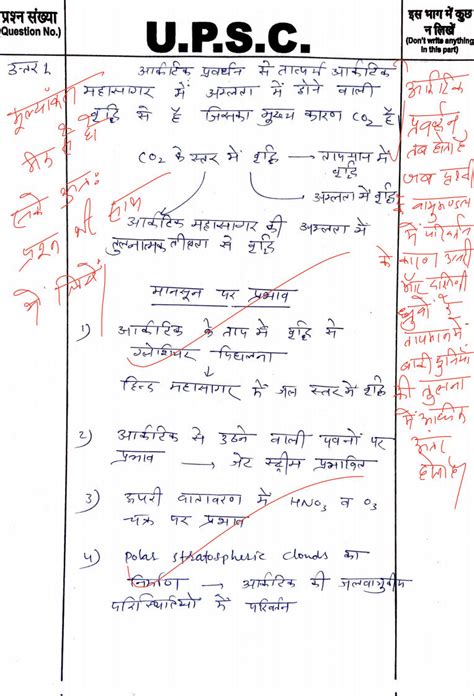 प्रश्न संख्या
(Question No.)
U.P.S.C.
इस भाग में कुछ
न लिखें
(Don't write anything
in this part)
उत्तर 1
आर्कटिक प्रवर्धन से तात्पर्य आर्कटिक
महासागर में अम्लता में होने वाली
वृद्धि से है जिसका मुख्य कारण CO2 है
CO2 के स्तर में वृद्धि → तापमान में
वृद्धि
अम्लता में वृद्धि
आर्कटिक महासागर की अम्लता में
तुलनात्मक तीव्रता से वृद्धि
मानसून पर प्रभाव
1) आर्कटिक के ताप में वृद्धि से
ग्लेशियर पिघलना
↓
हिन्द महासागर में जल स्तर में वृद्धि
2) आर्कटिक से उठने वाली पवनों पर
प्रभाव → जेट स्ट्रीम प्रभावित
3) ऊपरी वातावरण में HNO3 व O3
चक्र पर प्रभाव
4) Polar stratospheric clouds का
निर्माण → आर्कटिक की जलवायुवीय
परिस्थितियों में परिवर्तन
मूल्यांकन
के लिये
प्रश्न भी साथ
आर्कटिक
प्रवर्धन
तब होता है
जब पृथ्वी
के वायुमण्डल
में परिवर्तन
के कारण उत्तरी
और दक्षिणी
ध्रुवों के
तापमान में
बाकी दुनिया
की तुलना
में अधिक
अन्तर
होता है।